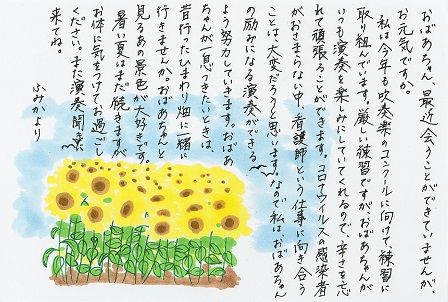 おばあちゃん、最近会うことができていませんが、
お元気ですか。
私は今年も吹奏楽のコンクールに向けて練習に
取り組んでいます。厳しい練習ですが、おばあちゃんが
いつも演奏を楽しみにしていてくれるので、辛さを忘
れて頑張ることができます。コロナウイルスの感染者
がおさまらない中、看護師という仕事に向き合う
ことは、大変だろうと思います。なので私は、おばあちゃん
の励みになる演奏ができる
よう努力していきます。おばあ
ちゃんが一息つきたいときは、
昔行ったひまわり畑に一緒に
行きませんか。おばあちゃんと
見るあの景色が大好きです。
暑い夏はまだ続きますが
お体に気をつけてお過ごし
ください。また演奏聞きに
来てね。
ふみかより